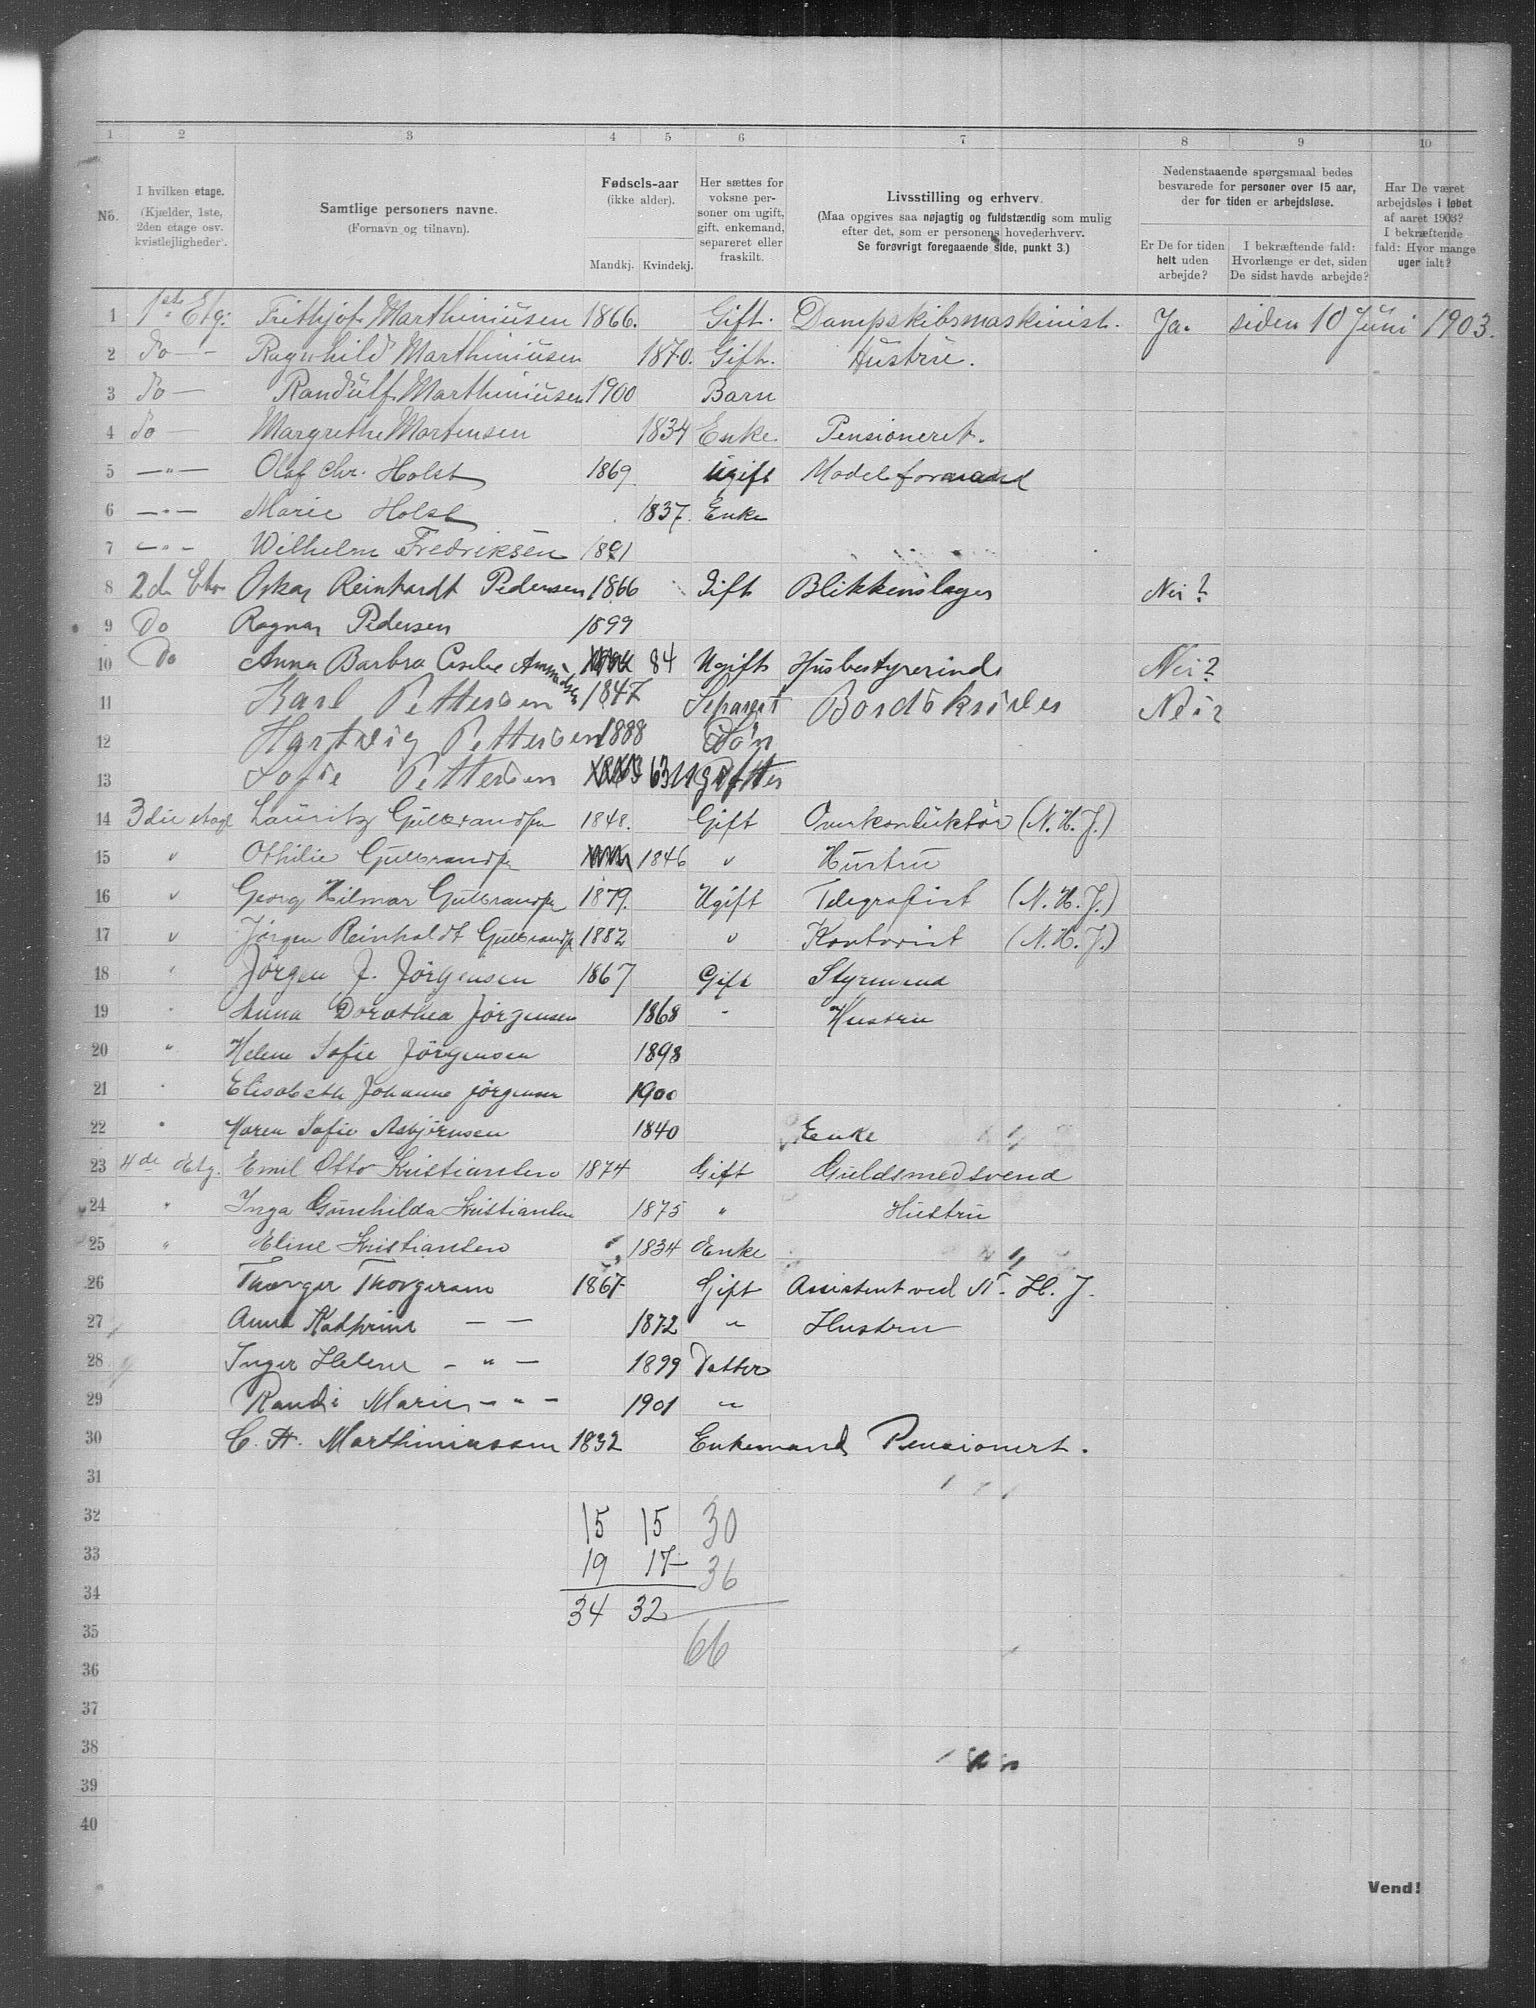 1 2 3 4 5 6 7 8 9 10
No.
I hvilken etage. (Kjælder, 1ste, 2den etage osv. kvistleiligheder).
Samtlige personers navne. (Fornavn og tilnavn).
Fødsels-aar (ikke alder).
Mandkj. Kvindekj.
Her sættes for voksne personer om ugift, gift, enkemand, separeret eller fraskilt.
Livsstilling og erhverv.
(Maa opgives saa nøjagtig og fuldstændig som mulig efter det, som er personens hovederhverv. Se forøvrigt foregaaende side, punkt 3.)
Nedenstaaende spørgsmaal bedes besvarede for personer over 15 aar, der for tiden er arbejdsløse.
Er De for tiden helt uden arbejde?
I bekræftende fald: Hvorlænge er det, siden De sidst havde arbejde?
Har De været arbejdsløs i løbet af aaret 1903? I bekræftende fald: Hvor mange uger ialt?
1 1ste Etg: Frithjof Marthiniusen 1866. Gift. Dampskibsmaskinist. Ja. siden 10 Juni 1903.
2 Do — Ragnhild Marthiniusen 1870. Gift. Hustru.
3 Do — Randulf Marthiniusen 1900 Barn
4 Do — Margrethe Mortensen 1834 Enke Pensioneret.
5 — " — Olaf Chr. Holst 1869 Ugift Modelformand
6 — " — Marie Holst 1837. Enke
7 — " — Wilhelm Fredriksen 1891
8 2d Oskar Reinhardt Pedersen 1866 Gift Blikkenslager Nei?
9 Do Ragnar Pedersen 1899
10 Do Anna Barbra 84 Ugift Husbestyrerinde Nei?
11 Karl Pettersen 1847 Separert Nei?
12 Hartvig Pettersen 1888 Søn
13 Sofie Pettersen 63
14 3die etage Lauritz Gulbrandsen 1848. Gift Overkonduktør (N. H. J.)
15 " Othilie Gulbrandsen 1846 " Hustru
16 " Georg Hilmar Gulbrandsen 1879. Ugift Telegrafist (N. H. J.)
17 " Jørgen Reinholdt Gulbrandsen 1882 " Kontorist (N. H. J.)
18 " Jørgen J. Jørgensen 1867 Gift Styrmand
19 " Anna Dorothea Jørgensen 1868 " Hustru
20 " Helene Sofie Jørgensen 1898
21 " Elisabeth Johanne Jørgensen 1900
22 " Maren Sofie Asbjørnsen 1840 Enke
23 4de Etg. Emil Otto Kristiansen 1874 Gift Guldsmedsvend
24 " Inga Gunhilda Kristiansen 1875 " Hustru
25 " Eline Kristiansen 1834 Enke
26 Thorger Thorgersen 1867 Gift Assistent ved N. H. J.
27 Anna Kathrine — — 1872 " Hustru
28 Inger Helene — " — 1899 Datter
29 Randi Marie — " — 1901 "
30 C. H. Marthiniussen 1832 Enkemand Pensionert.
31
32 15 15 30
33 19 17 36
34 34 32
35 66
36
37
38
39
40
Vend!